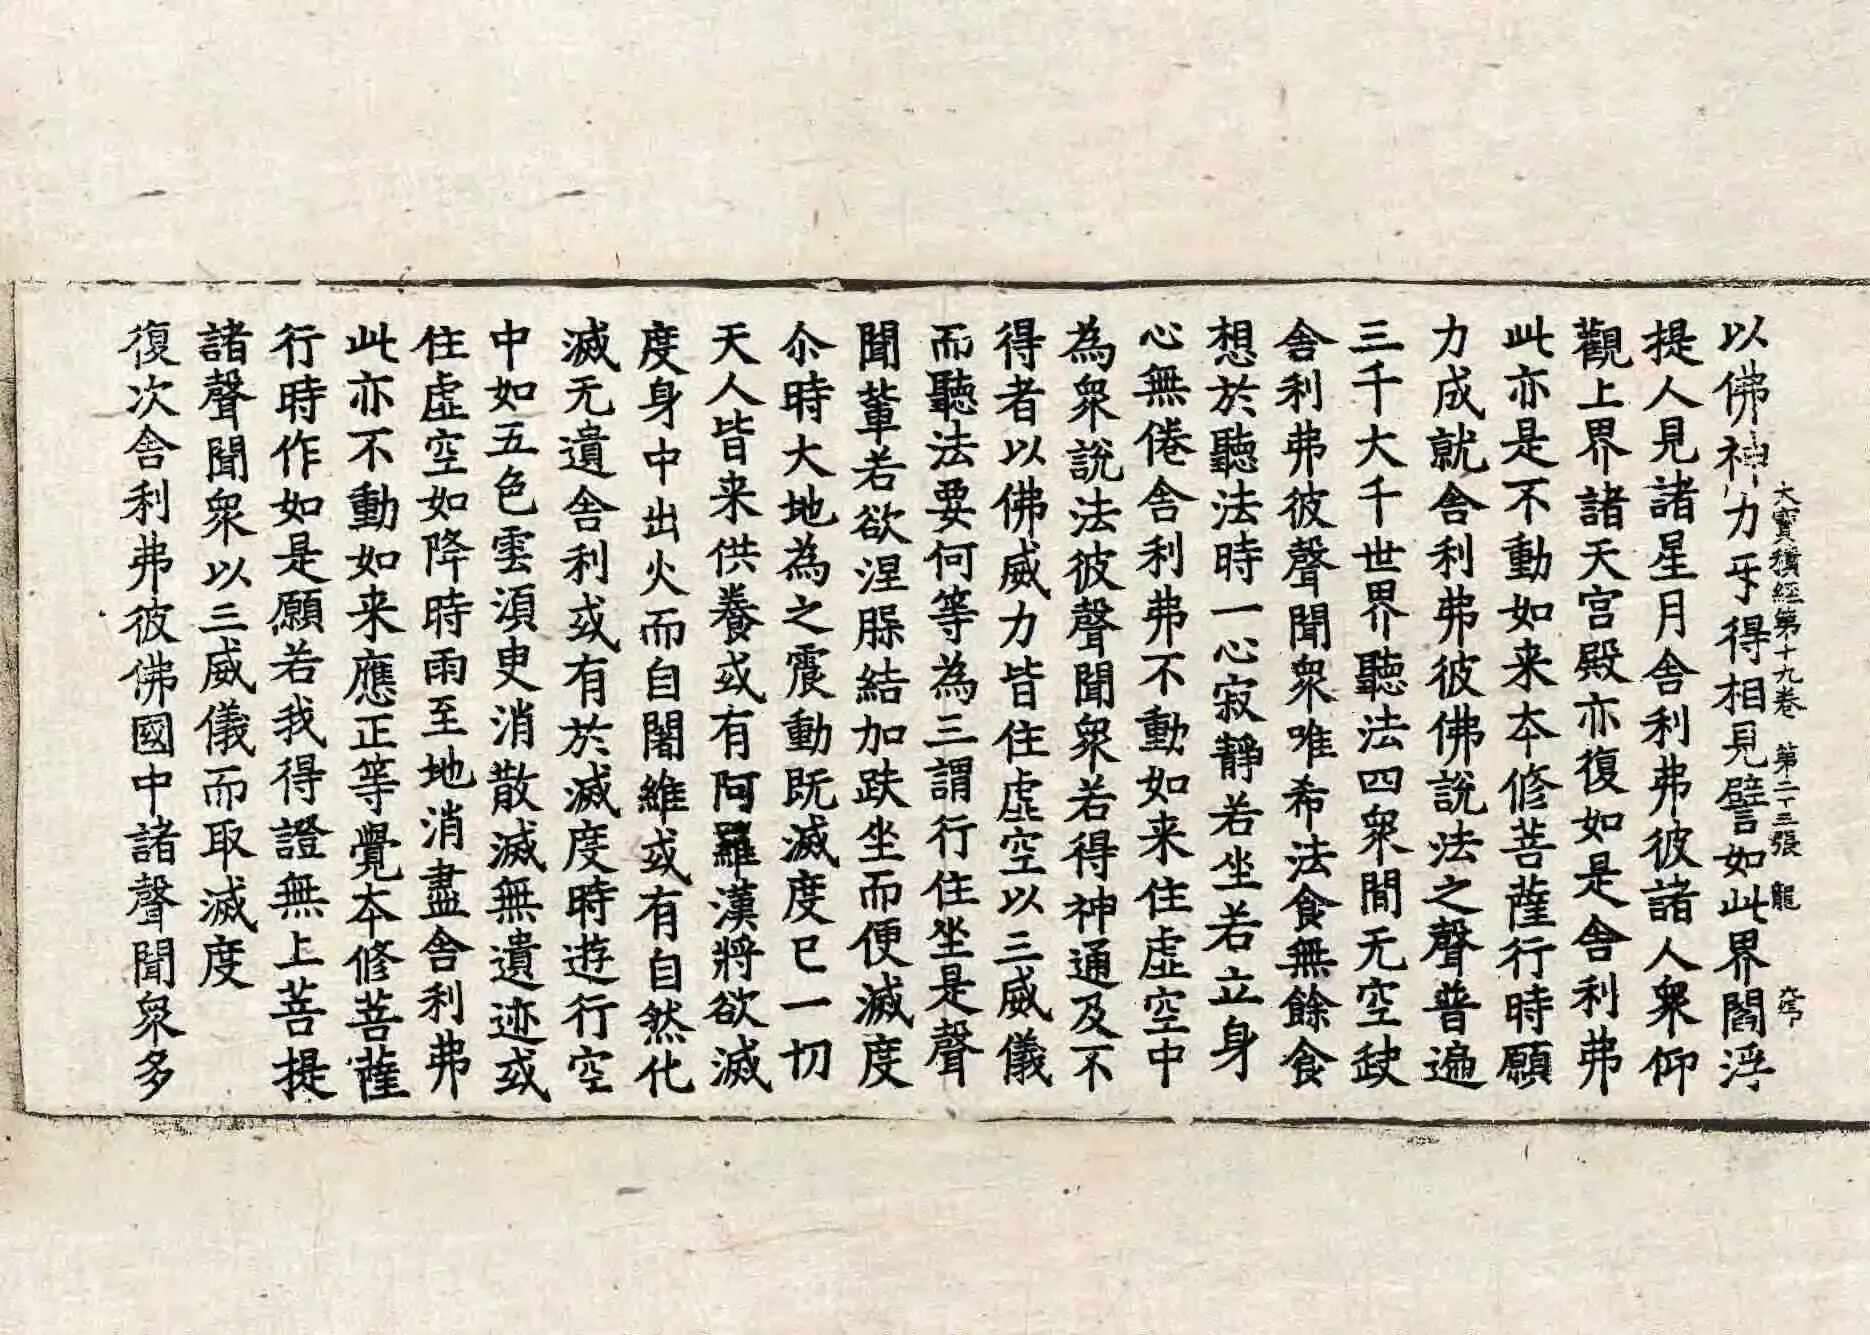 大寶積經第十九卷 第二十三張 龍
以佛神力手得相見譬如此界閻浮
提人見諸星月舍利弗彼諸人衆仰
觀上界諸天宮殿亦復如是舍利弗
此亦是不動如来夲修菩薩行時願
力成就舍利弗彼佛說法之聲普遍
三千大千世界聽法四衆間无空缺
舍利弗彼聲聞衆唯希法食無餘食
想於聽法時一心寂靜若坐若立身
心無倦舍利弗不動如来住虛空中
為衆說法彼聲聞衆若得神通及不
得者以佛威力皆住虛空以三威儀
而聽法要何等為三謂行住坐是聲
聞輩若欲涅槃結加趺坐而便滅度
尒時大地為之震動既滅度已一切
天人皆来供養或有阿羅漢將欲滅
度身中出火而自闍維或有自然化
滅无遺舍利或有於滅度時遊行空
中如五色雲湏臾消散滅無遺迹或
住虛空如降時雨至地消盡舍利弗
此亦不動如来應正等覺夲修菩薩
行時作如是願若我得證無上菩提
諸聲聞衆以三威儀而取滅度
復次舍利弗彼佛國中諸聲聞衆多